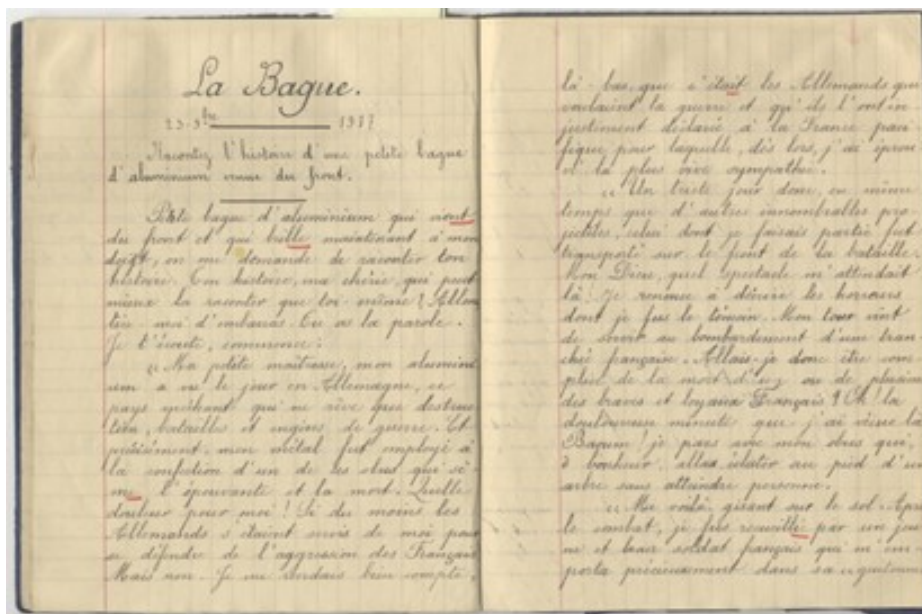 La Bague.
23-9bre 1917
Racontez l'histoire d'une petite bague
d'aluminium venue du front.
Petite bague d'aluminium qui vient
du front et qui brille maintenant à mon
doigt, on me demande de raconter ton
histoire. Ton histoire, ma chérie, qui peut
mieux la raconter que toi-même ? Allons
tire-moi d'embarras. Tu as la parole.
Je t'écoute, commence :
"Ma petite maîtresse, mon alumini
um a vu le jour en Allemagne, ce
pays méchant qui ne rêve que destruc
tion, batailles et engins de guerre. Et
précisément, mon métal fut employé à
la confection d'un de ces obus qui sè-
me l'épouvante et la mort. Quelle
douleur pour moi ! Si du moins les
Allemands s'étaient servis de moi pour
se défendre de l'aggression des Français
Mais non. Je me rendais bien compte,
là-bas, que c'était les Allemands qui
voulaient la guerre et qu'ils l'ont in
justement déclarée à la France paci
fique pour laquelle, dès lors, j'ai éprou
vé la plus vive sympathie.
"Un triste jour donc, en même
temps que d'autres innombrables pro
jectiles, celui dont je faisais partie fut
transporté sur le front de la bataille.
Mon Dieu, quel spectacle m'attendait
là ! Je renonce à décrire les horreurs
dont je fus le témoin. Mon tour vint
de servir au bombardement d'une tran
chée française. Allais-je donc être com
plice de la mort d'un ou de plusieurs
des braves et loyaux Français ? Oh ! la
douloureuse minute que j'ai vécue là
je pars avec mon obus qui,
ô bonheur, alla éclater au pied d'un
arbre sans atteindre personne.
"Me voilà, gisant sur le sol. Après
le combat, je fus recueilli par un jeu
ne et beau soldat français qui m'em
porta précieusement dans sa